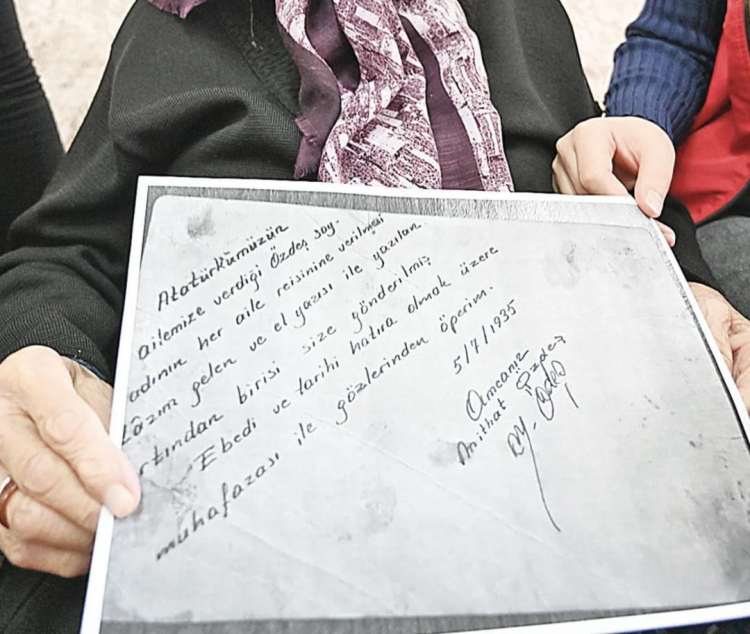 Atatürkümüzün
ailemize verdiği Özdeş soy-
adının her aile reisinine verilmesi
Lâzım gelen ve el yazısı ile yazılan
rtından birisi size gönderilmiş
Ebedi ve tarihi hatıra olmak üzere
muhafazası ile gözlerinden öperim.
5/7/1935
Amcanız
Mithat Özdeş